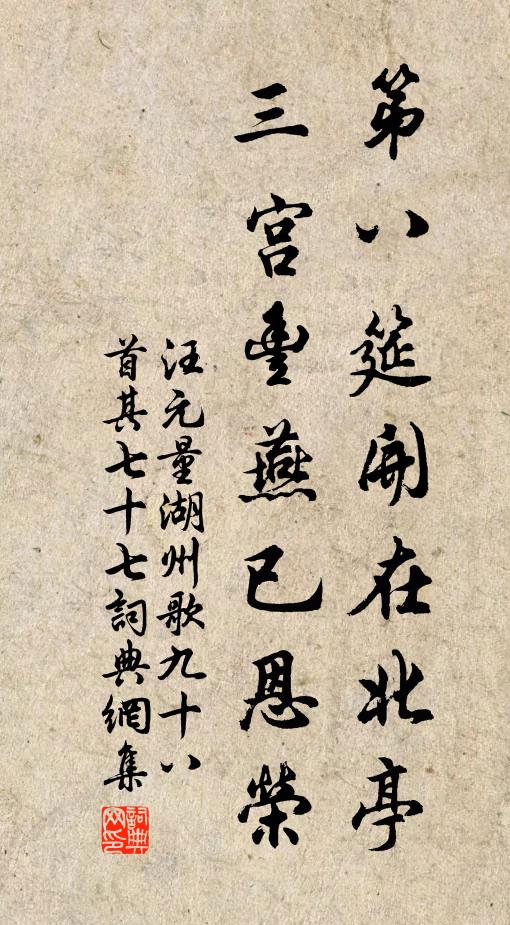 第八筵開在北亭
三宫豐燕已恩榮
汪元量湖州歌九十八
首其七十七詞典網集
詞典网印